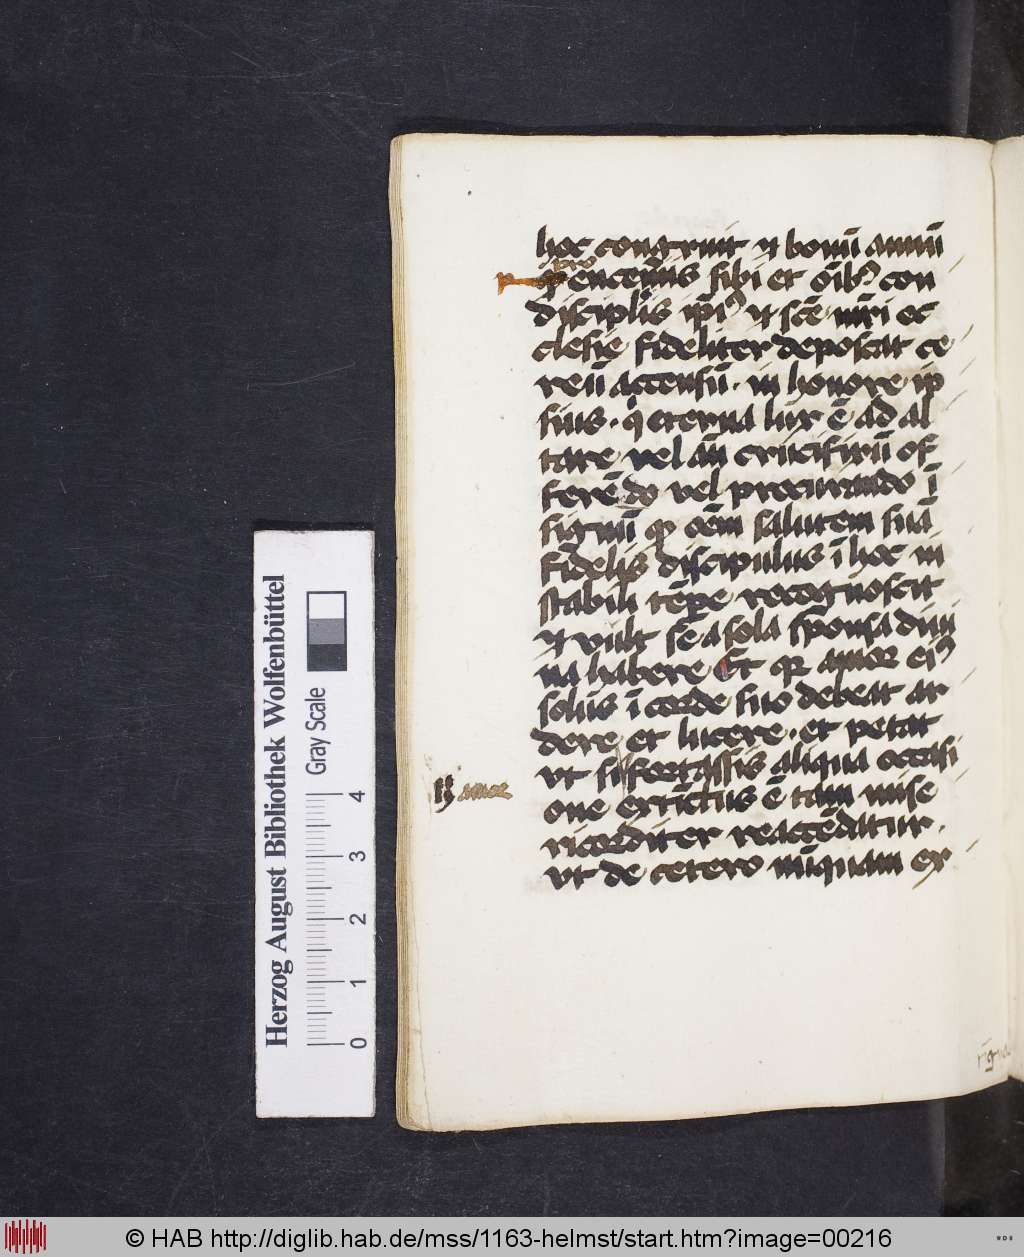 hoc congruit ut bonū annū
pro
entemis sibi et oīb9 con
discipliis ipi9 ut sce nr̄i ec
clesie fideliter deposcat ce
reū accensū. in honore ip
sius. q eterna lux ē ad al
tare vel aū crucifixū of
ferēdo vel procurando ī
signū qr oēm salutem suā
fidelis discipulus ī hoc in
stabili tēpe recognoscit
ut vult se a sola sponsa diui
na habere Et qr amor ei9
solus ī corde suo debeat ar
dere et lucere. et petat
vt si fortassis aliqua occasi
amor
one extīctus ē tam mise
ricorditer reaccēdatur.
vt de cetero nūquam ex
Herzog August Bibliothek Wolfenbüttel
Gray Scale
0 1 2 3 4
© HAB http://diglib.hab.de/mss/1163-helmst/start.htm?image=00216